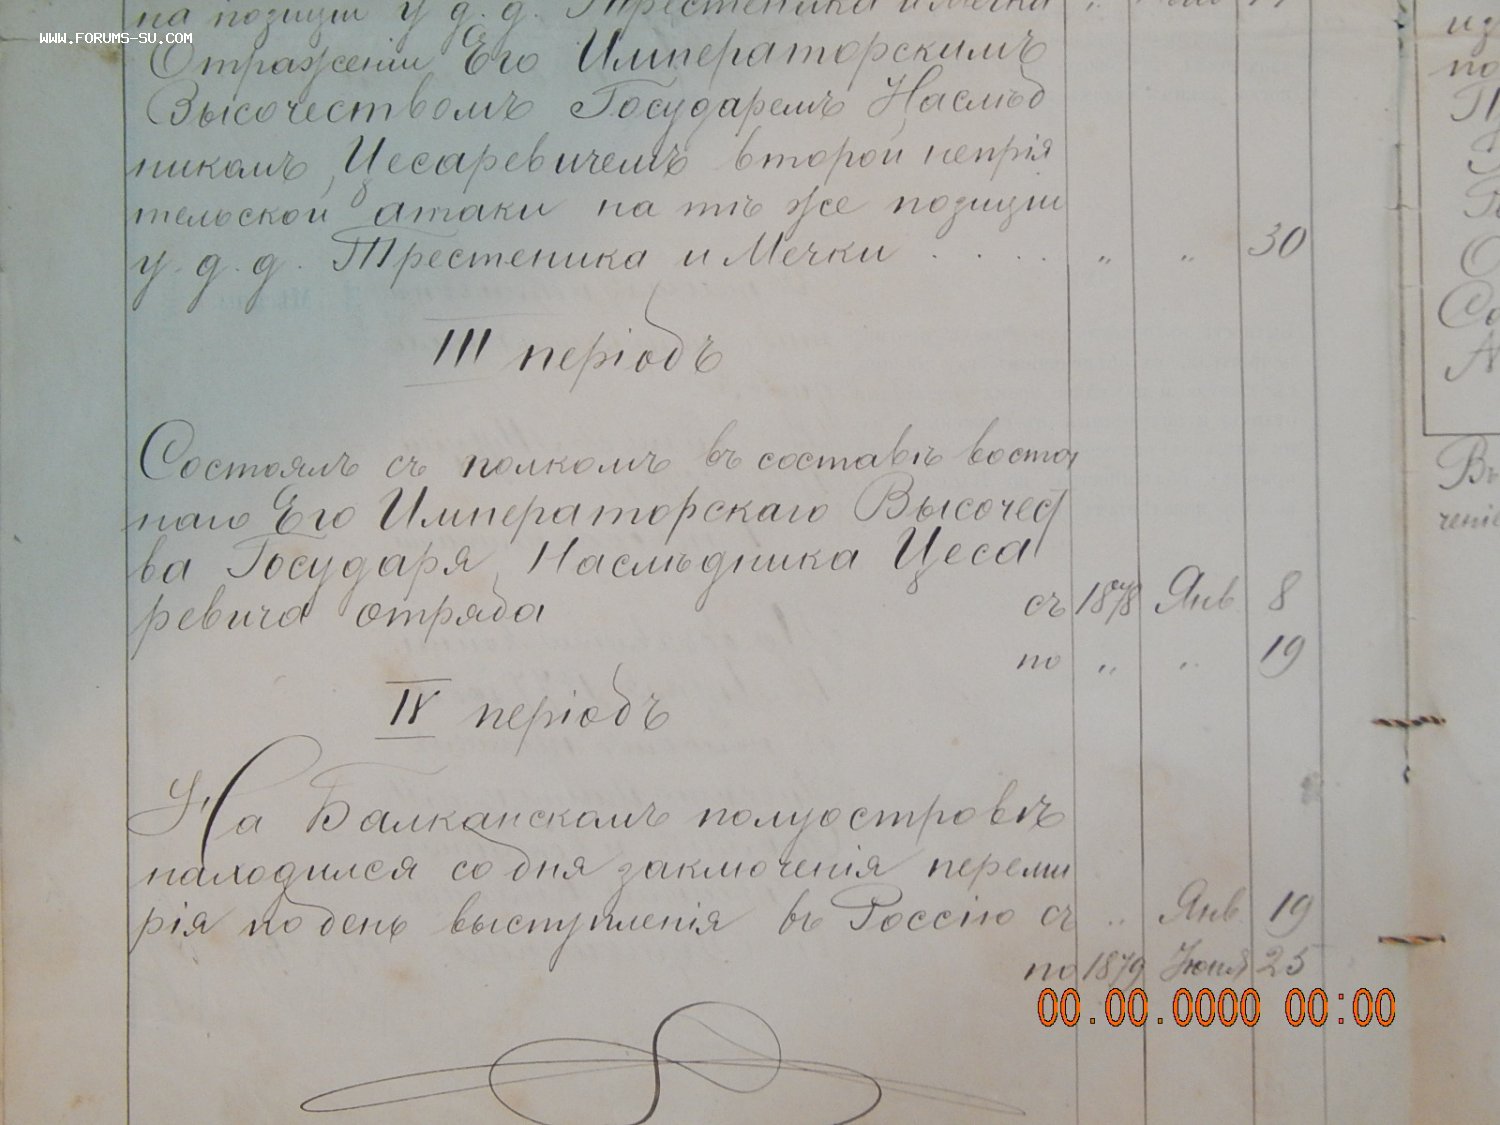 WWW.FORUMS-SU.COM
на позиціи у д. д. Трестеника и Мечки
Отраженіи Его Императорскимъ
Высочествомъ Государемъ Наслѣд
никомъ Цесаревичемъ второй непрія
тельской атаки на тѣ же позиціи
у д. д. Трестеника и Мечки . . . . „ „ 30
III періодъ
Состоялъ съ полкомъ въ составѣ восточ
наго Его Императорскаго Высочест
ва Государя Наслѣдника Цеса
ревича отряда съ 1878 Янв. 8
по „ „ 19
IV періодъ
На Балканскомъ полуостровѣ
находился со дня заключенія переми
рія по день выступленія въ Россію съ „ Янв. 19
по 1879 Іюня 25
из
по
Въ
ченіе
00.00.0000 00:00